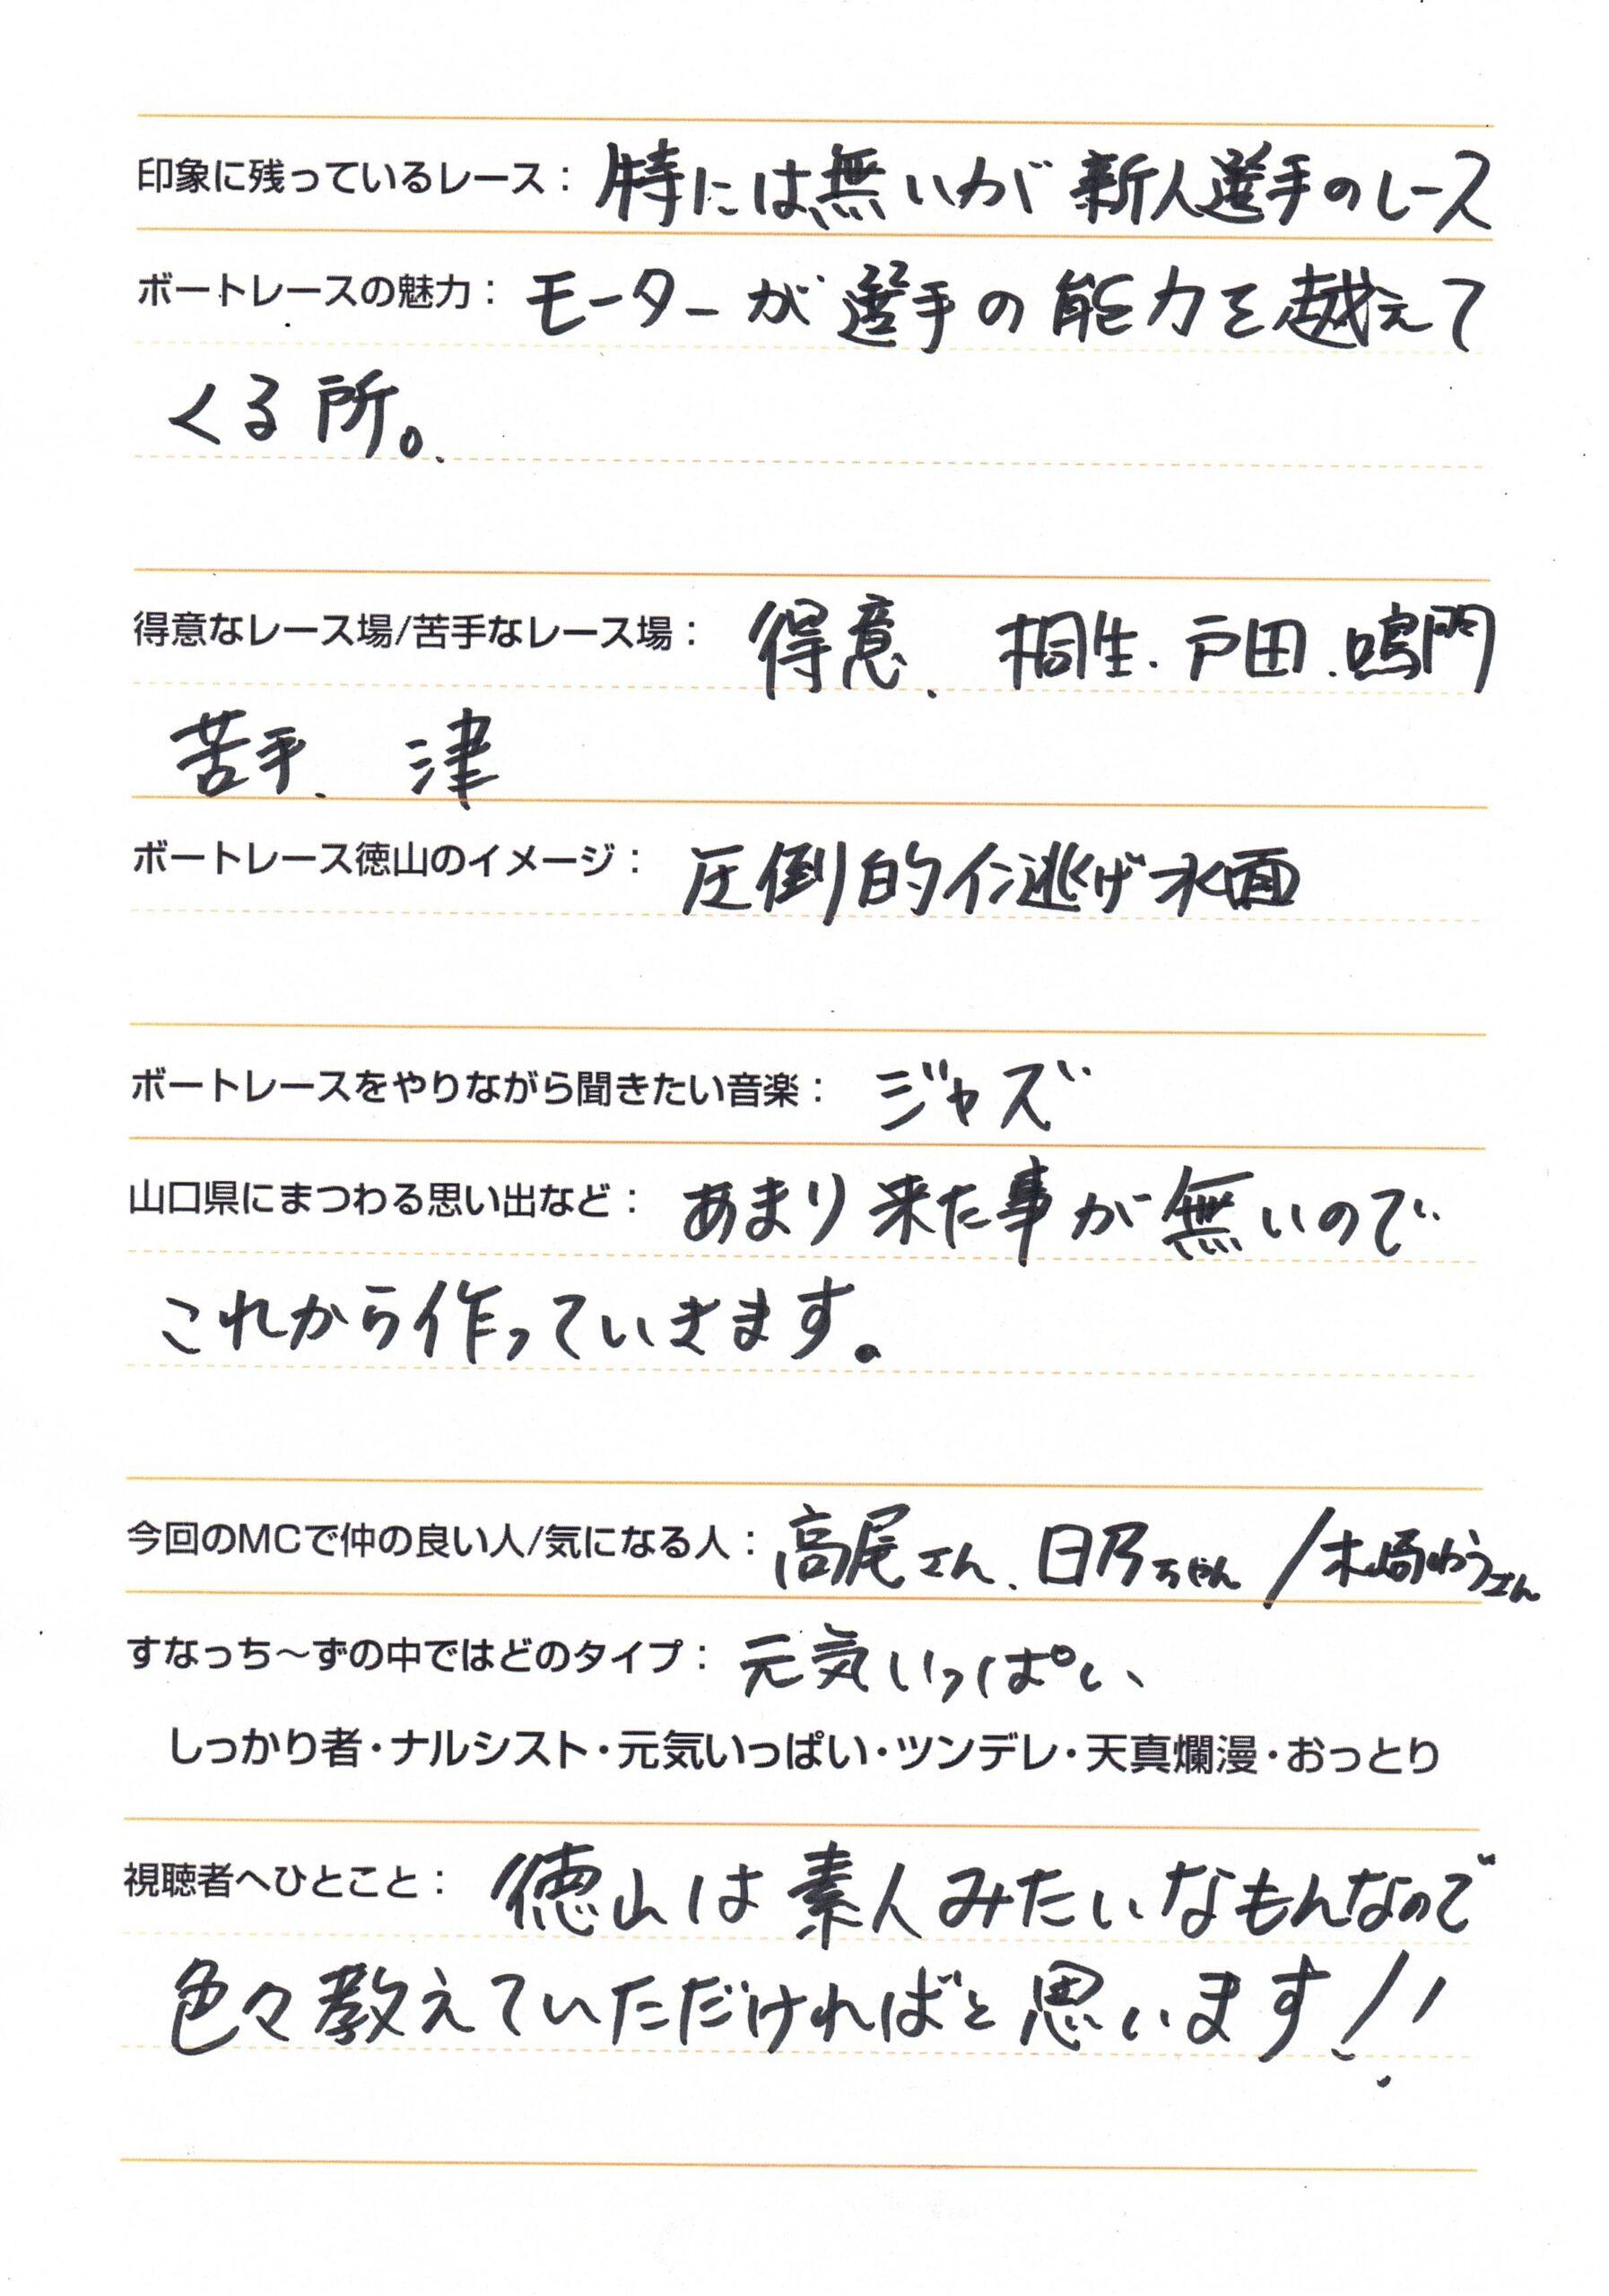 印象に残っているレース： 特には無いが新人選手のレース
ボートレースの魅力： モーターが選手の能力を越えて
くる所。
得意なレース場/苦手なレース場： 得意、桐生．戸田．鳴門
苦手、津
ボートレース徳山のイメージ： 圧倒的イン逃げ水面
ボートレースをやりながら聞きたい音楽： ジャズ
山口県にまつわる思い出など： あまり来た事が無いので
これから作っていきます。
今回のMCで仲の良い人/気になる人： 高尾さん、日乃ちゃん/木崎ゆうさん
すなっち～ずの中ではどのタイプ： 元気いっぱい
しっかり者・ナルシスト・元気いっぱい・ツンデレ・天真爛漫・おっとり
視聴者へひとこと： 徳山は素人みたいなもんなので
色々教えていただければと思います!!